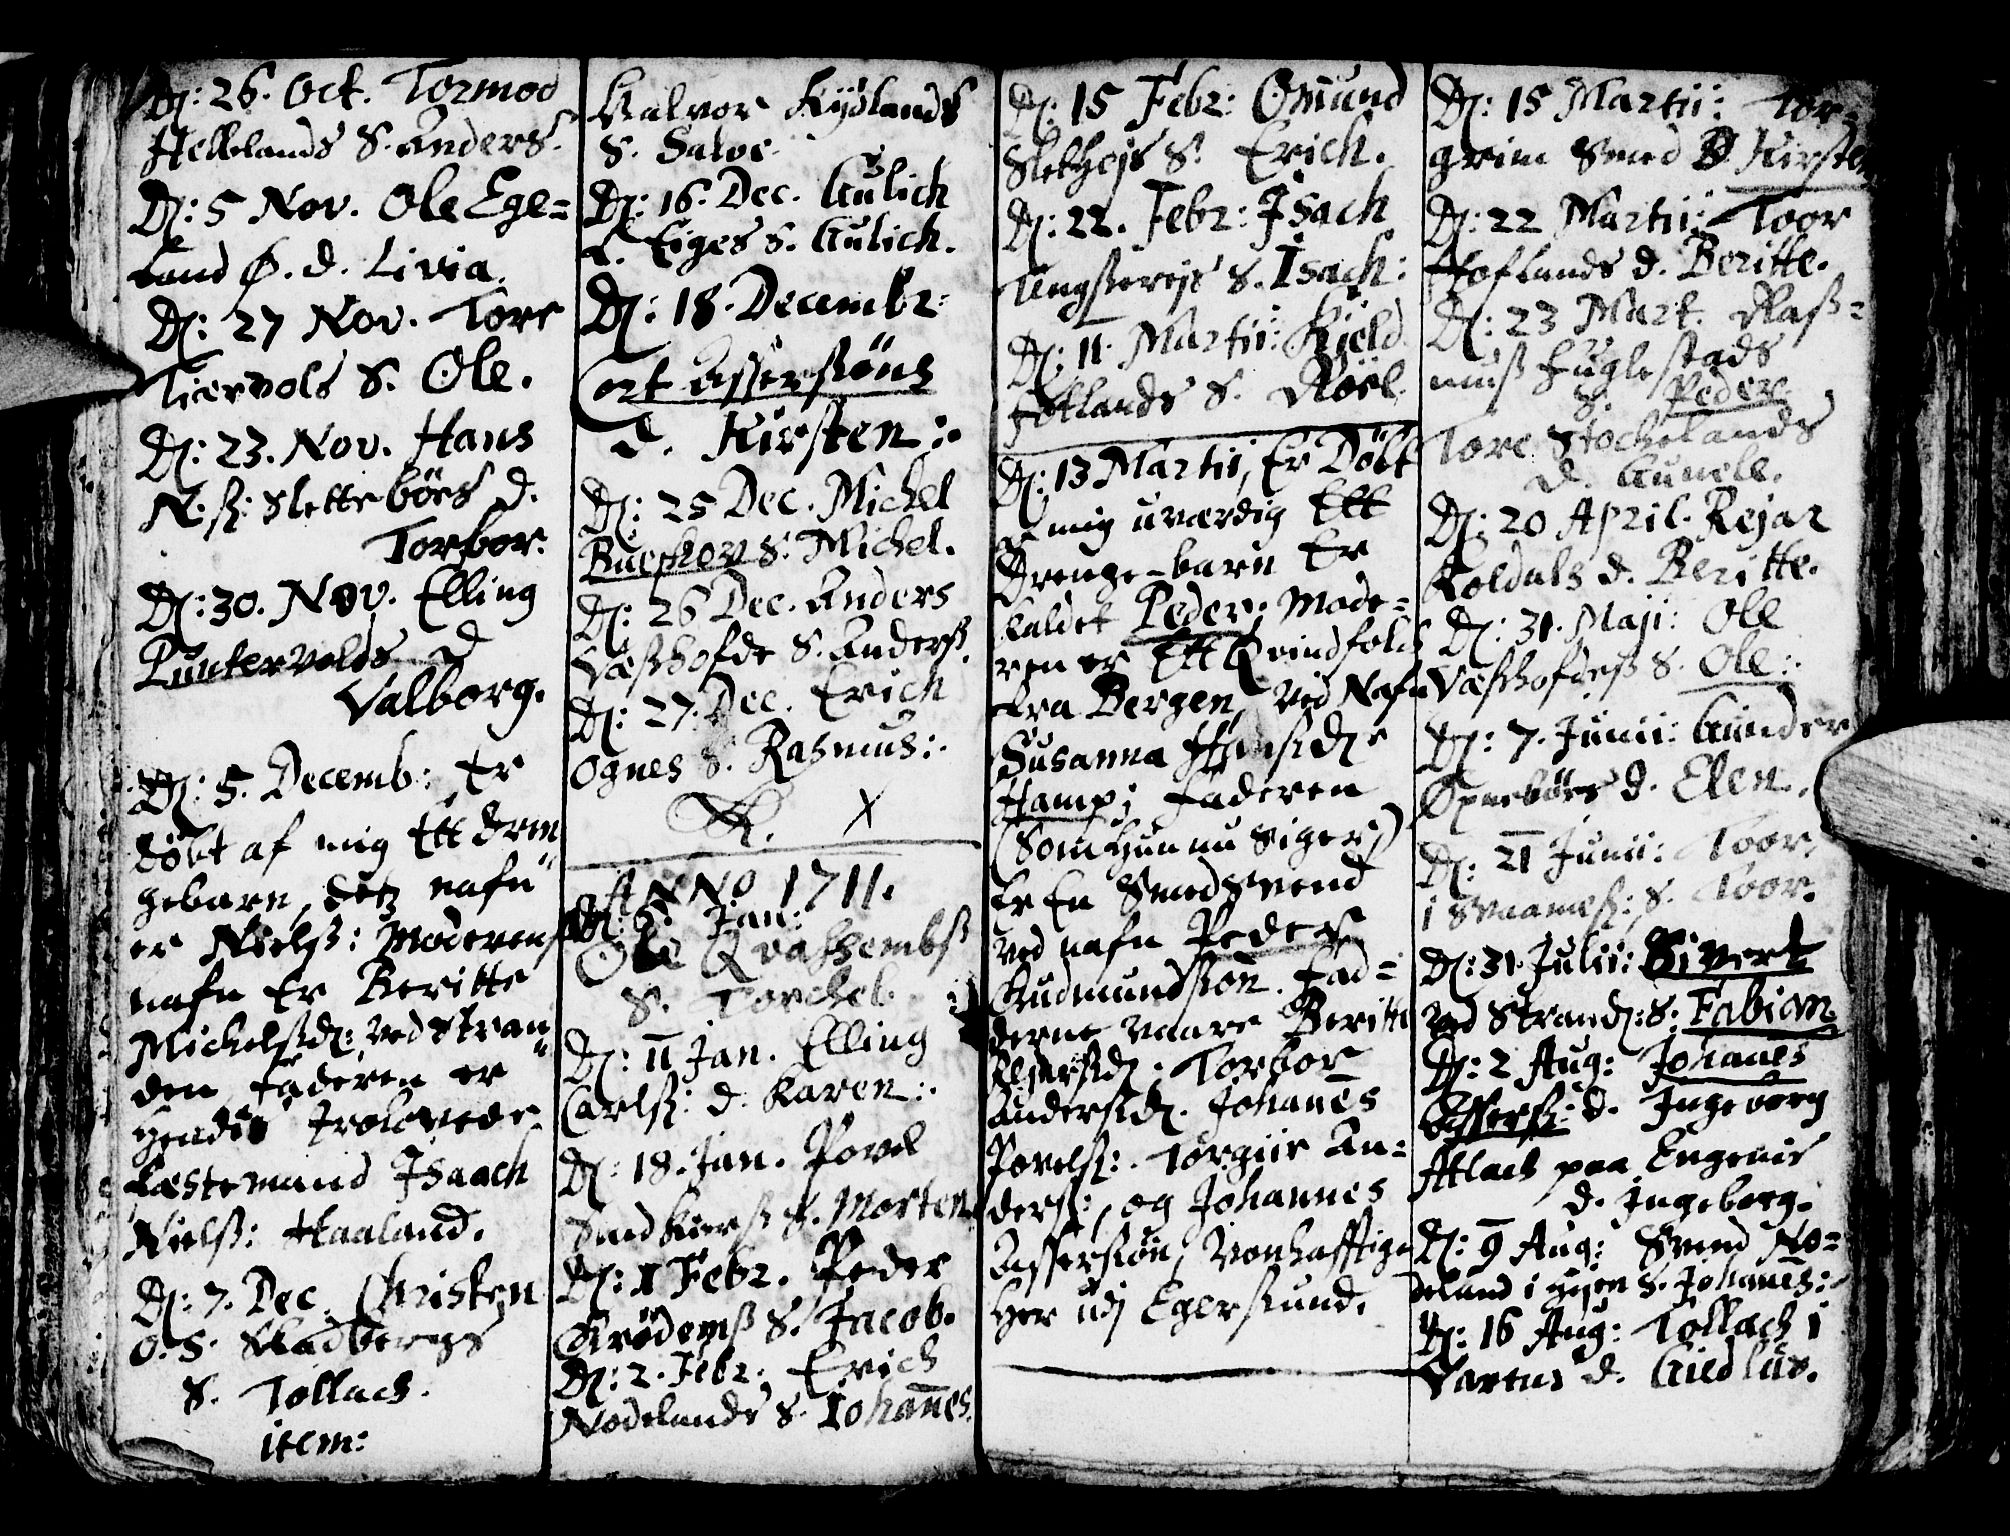 D: 26. Oct. Tormod
Hellelands S. Anders.
D: 5 Nov. Ole Ege=
land Ø. d. Livia.
D: 27 Nov. Tore
Tiærvols S. Ole.
D: 23. Nov. Hans
N. ß: Sletteböes d.
Torbor.
D: 30. Nov. Elling
Puntervolds d
Valborg.
D: 5. Decemb: Er
döbt af mig Ett dren
gebarn, detz nafn
er Nielß: Moderens
nafn Er Beritte
Michelßd: ved Stran
den, faderen er
hendis Trolovede
Fæstemand Isaach
Nielß: Haaland.
D: 7. Dec. Christen
O. S. Skadbergs
S. Tollach.
item:
Halvor Kydlands
S. Salve.
D: 16. Dec. Gulich
L. Eiges S. Gulich.
D: 18. Decembr:
Cort Asserßöns
d. Kirsten:.
D: 25 Dec. Michel
Buchhov S. Michel.
D: 26 Dec. Anders
Væshofde S. Anderß.
D: 27. Dec. Erich
Ognes S. Rasmus:.
X
ANNO 1711.
D: 6. Jan:
Ole Qvassembß
S. Torchel.
D: 11 Jan. Elling
Carlß: d. Karen:.
D: 18. Jan. Povel
Sandkierß S. Morten
D: 1 Febr. Peder
Krödemß S. Jacob.
D: 2. Febr. Erich
Nodelands S. Johanes.
D: 15 Febr: Omund
Slethejs S. Erich.
D: 22. Febr: Isach
S. Isach:
D: 11. Martii: Kield
Fotlands S. Roel.
D: 13 Martii, Er Döbt
af mig uværdig Ett
Drenge-barn Er
kaldet Peder; Mode=
ren er Ett Qvindfolch
fra Bergen, ved Nafn
Susanna Hansd:
Hamp; faderen
(Som hun nu siger)
Er En Smedsvend
ved nafn Peder
Gudmundßön. Fad=
derne vaare Beritte
Rejersd: Torbor
Andersd. Johanes
Povelß: Torgiir An=
derß:, og Johannes
Asserßön, Vonhafftige
her udj Egersund.
D: 15 Martii: Tor=
grim Smed D. Kirsten
D: 22 Martii: Toor
Hoflands d. Beritte.
D: 23 Mart. Raß=
muß Fuglestads
S. Peder
Tore Stochelands
d. Gunele.
D: 20 April. Rejar
Koldals d. Beritte.
D: 31. Maji: Ole
Væshofdeß S. Ole:.
D: 7. Junii: Gunder
Öpnebörs d. Elen.
D: 21 Junii: Toor
i S. Toor.
D: 31 Julii: Sivert
ved Strand: S: Fabian
D: 2 Aug: Johanes
Asserß: d. Ingeborg
Attlach paa Engenis
d. Ingeborg.
D: 9 Aug: Svend No=
deland i hejen S. Johanes:
D: 16 Aug: Tollach i
d. Giedlus.